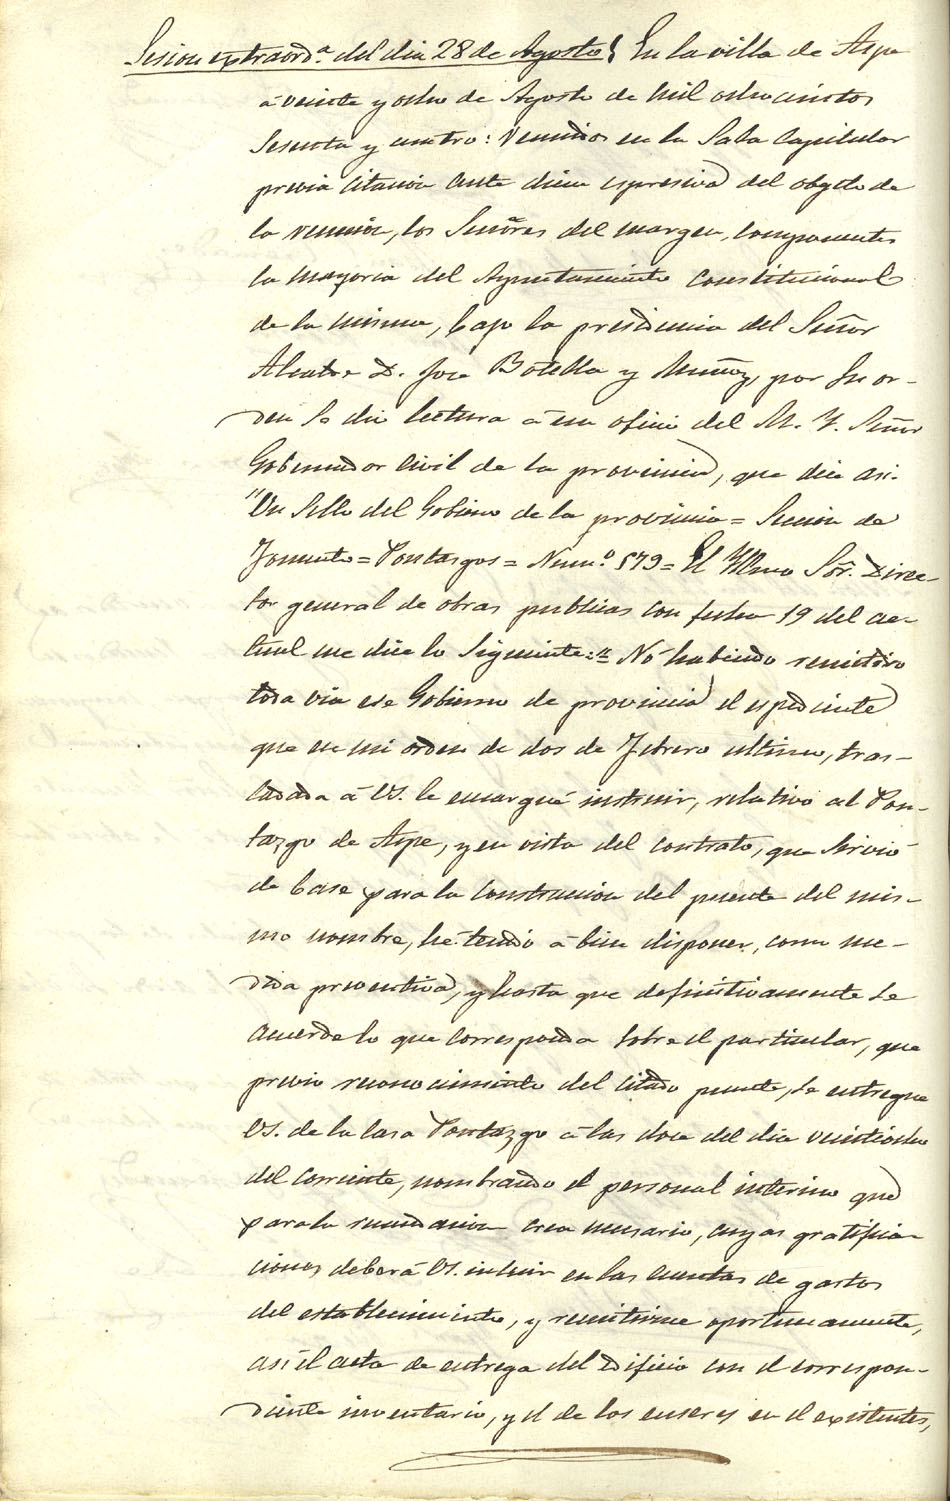 Sesion extraord.ª del dia 28 de Agosto } En la villa de Aspe
á veinte y ocho de Agosto de mil ochocientos
sesenta y cuatro: reunidos en la Sala Capitular
previa citacion ante diem espresiva del obgeto de
la reunion, los Señores del margen, componentes
la mayoria del Ayuntamiento Constitucional
de la misma, bajo la presidencia del Señor
Alcalde D. Jose Botella y Muñoz, por su or-
den se dio lectura á un oficio del M. Y. Señor
Gobernador Civil de la provincia, que dice asi.
"Un Sello del Gobierno de la provincia = Seccion de
Fomento = Pontazgos = Num.º 579 = El Yllmo Sōr. Direc-
tor general de obras publicas con fecha 19 del ac-
tual me dice lo siguiente:= No habiendo remitido
toda via ese Gobierno de provincia el espediente
que en mi orden de dos de Febrero ultimo, tras-
ladada á VS. le encargué instruir, relativo al Pon-
tazgo de Aspe, y en vista del contrato, que sirvió
de base para la construccion del puente del mis-
mo nombre, hé tenido á bien disponer, como me-
dida preventiva, y hasta que definitivamente se
acuerde lo que corresponda sobre el particular, que
previo reconocimiento del citado puente, se entregue
VS. de la Casa Pontazgo á las doce del dia veintiocho
del corriente, nombrando el personal interino que
para la recaudacion crea necesario, cuyas gratifica-
ciones deberá VS. incluir en las cuentas de gastos
del establecimiento, y remitirme oportunamente,
asi el acta de entrega del edificio con el correspon-
diente inventario, y el de los enseres en el existentes,